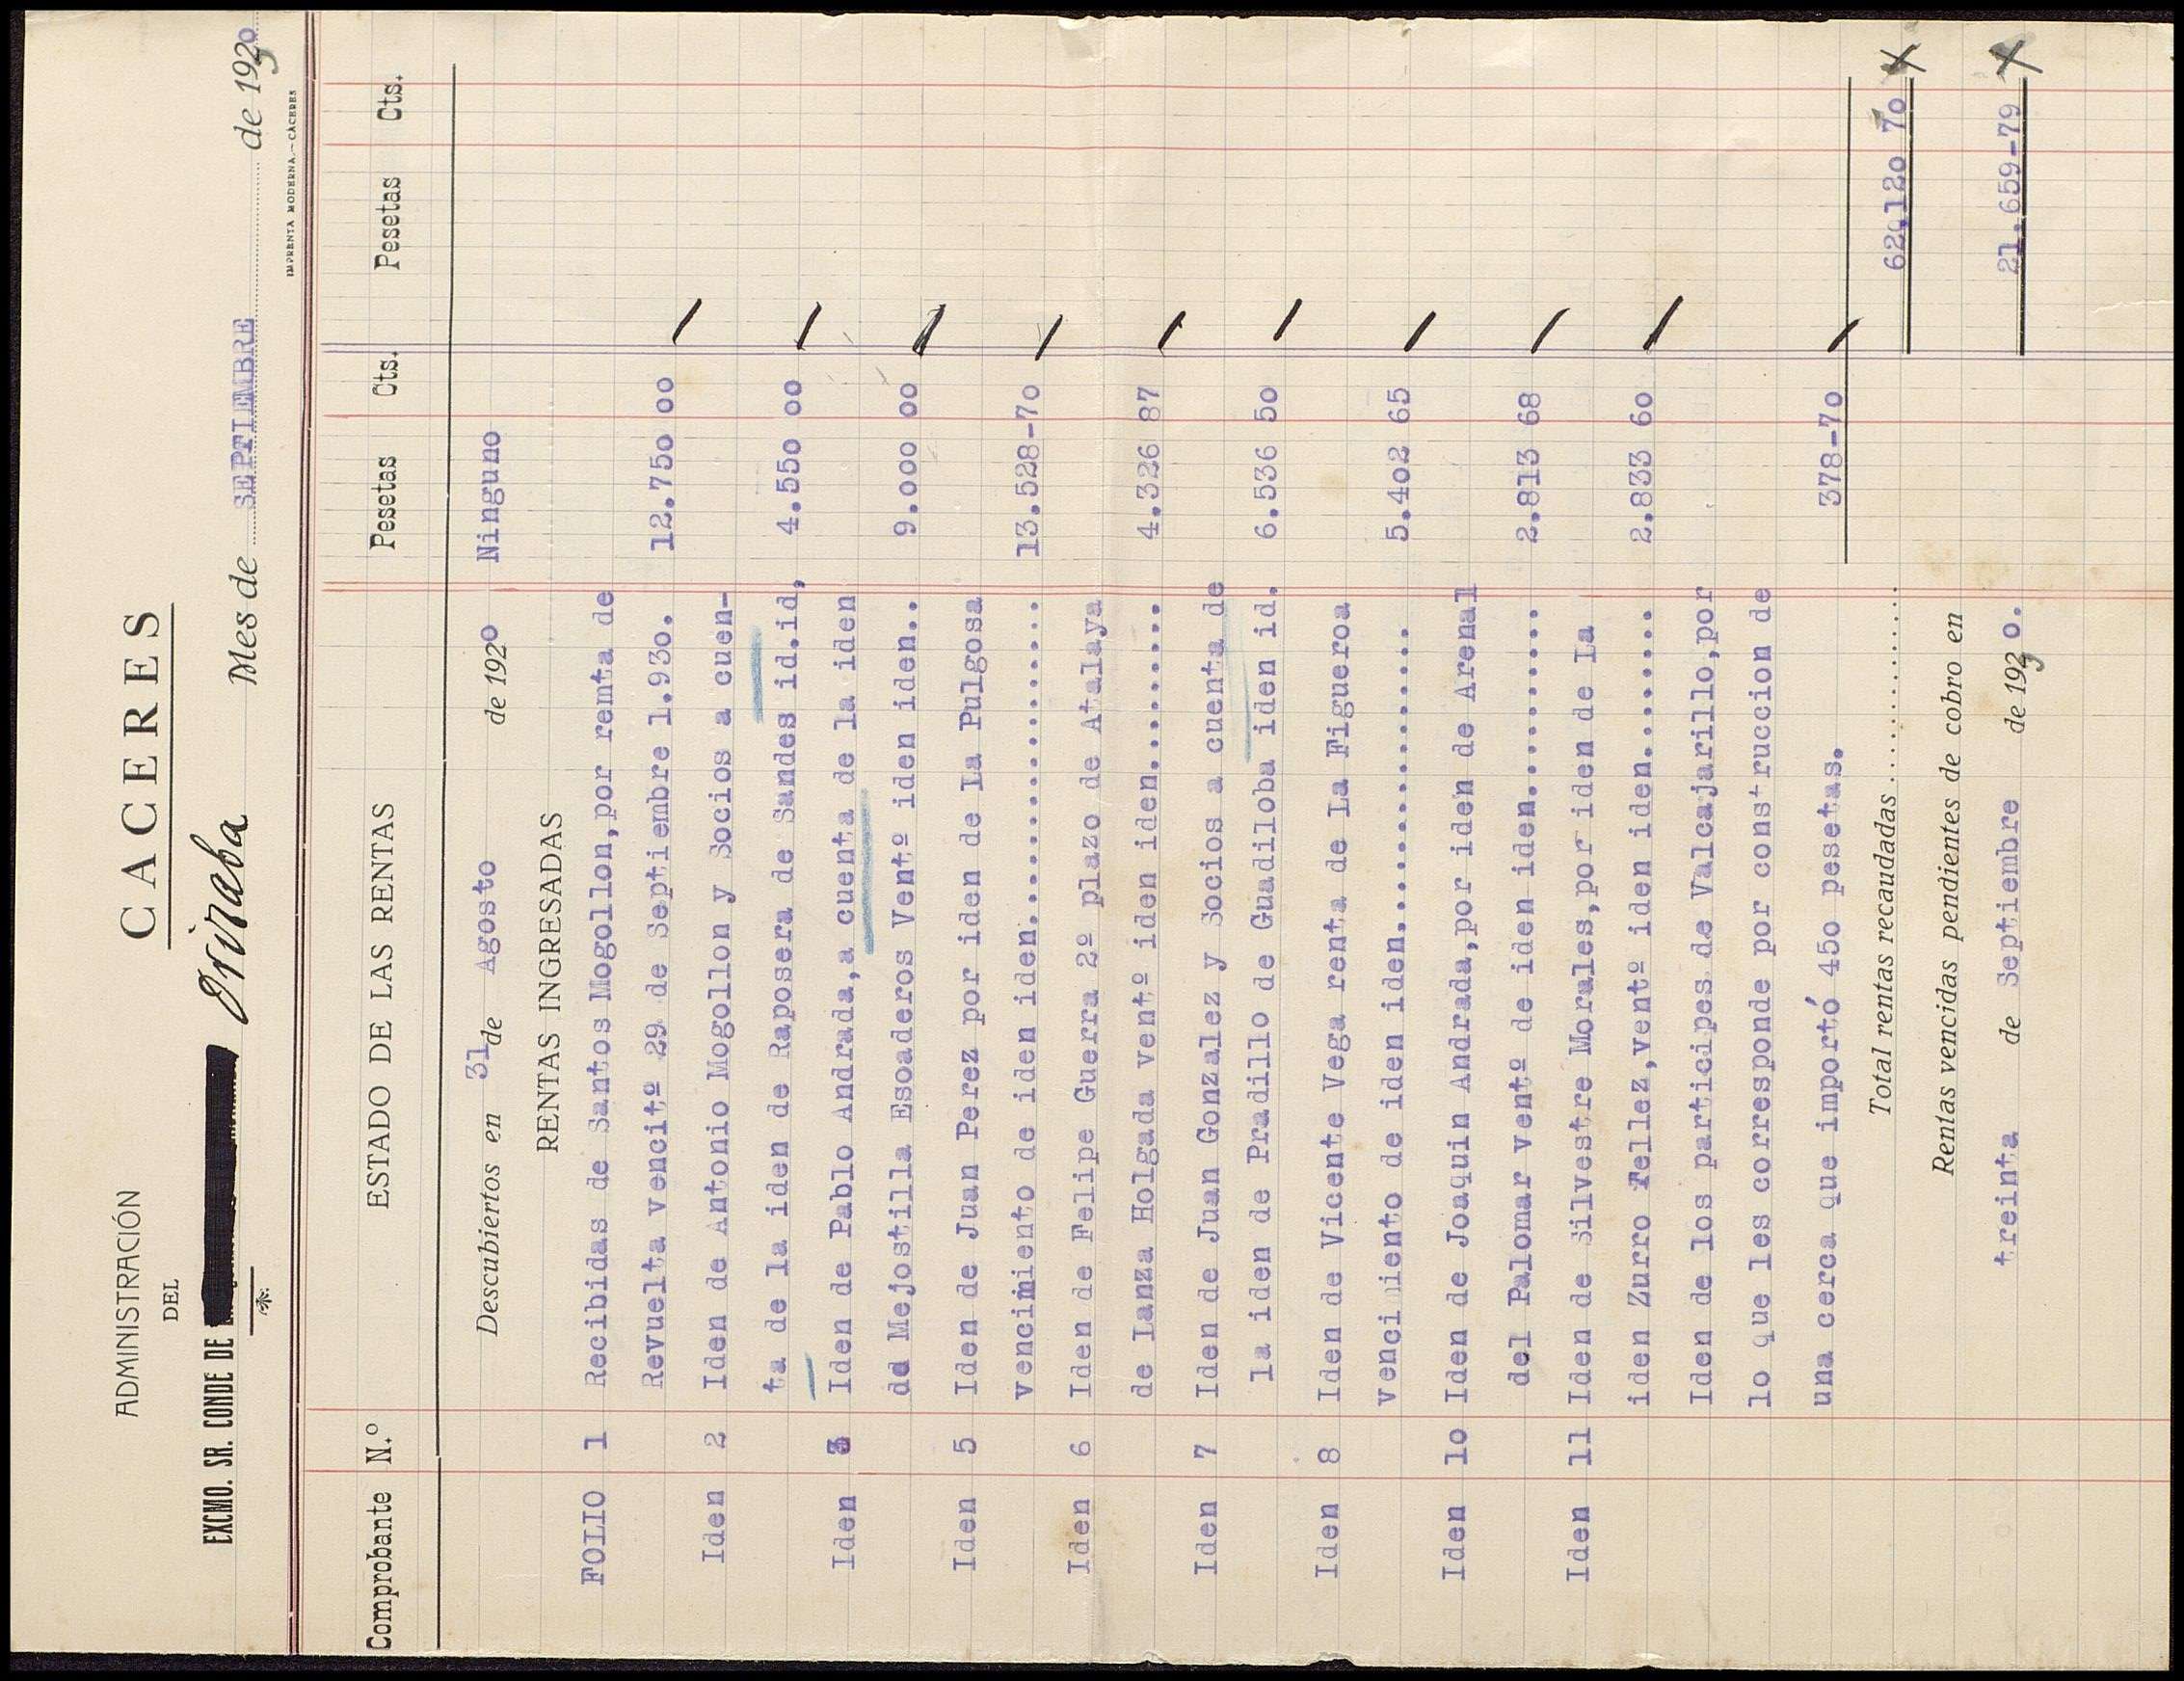 ADMINISTRACIÓN
DEL
EXCMO. SR. CONDE DE
CACERES
Mes de SEPTIEMBRE de 1930
IMPRENTA MODERNA.—CÁCERES
Comprobante N.º ESTADO DE LAS RENTAS Pesetas Cts. Pesetas Cts.
Descubiertos en 31 de Agosto de 1920 Ninguno
RENTAS INGRESADAS
FOLIO 1 Recibidas de Santos Mogollon,por renta de
Revuelta vencitº 29 de Septiembre 1.930. 12.750 00
Iden 2 Iden de Antonio Mogollon y Socios a cuen-
ta de la iden de Raposera de Sandes id.id, 4.550 00
Iden 3 Iden de Pablo Andrada,a cuenta de la iden
de Mejostilla Esoaderos Ventº iden iden.. 9.000 00
Iden 5 Iden de Juan Perez por iden de La Pulgosa
vencimiento de iden iden................... 13.528-70
Iden 6 Iden de Felipe Guerra 2º plazo de Atalaya
de Lanza Holgada ventº iden iden.......... 4.326 87
Iden 7 Iden de Juan Gonzalez y Socios a cuenta de
la iden de Pradillo de Guadiloba iden id. 6.536 50
Iden 8 Iden de Vicente Vega renta de La Figueroa
venciniento de iden iden.................. 5.402 65
Iden 10 Iden de Joaquin Andrada,por iden de Arenal
del Palomar ventº de iden iden.......... 2.813 68
Iden 11 Iden de Silvestre Morales,por iden de La
iden Zurro Tellez,ventº iden iden........ 2.833 60
Iden de los participes de Valcajarillo,por
lo que les corresponde por construccion de
una cerca que importó 450 pesetas. 378-70
Total rentas recaudadas .................. 62.120 70
Rentas vencidas pendientes de cobro en
treinta de Septiembre de 1930. 21.659-79